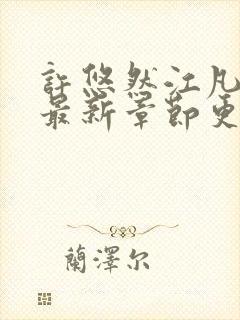 許悠然江凡
最新章節更
蘭澤尔